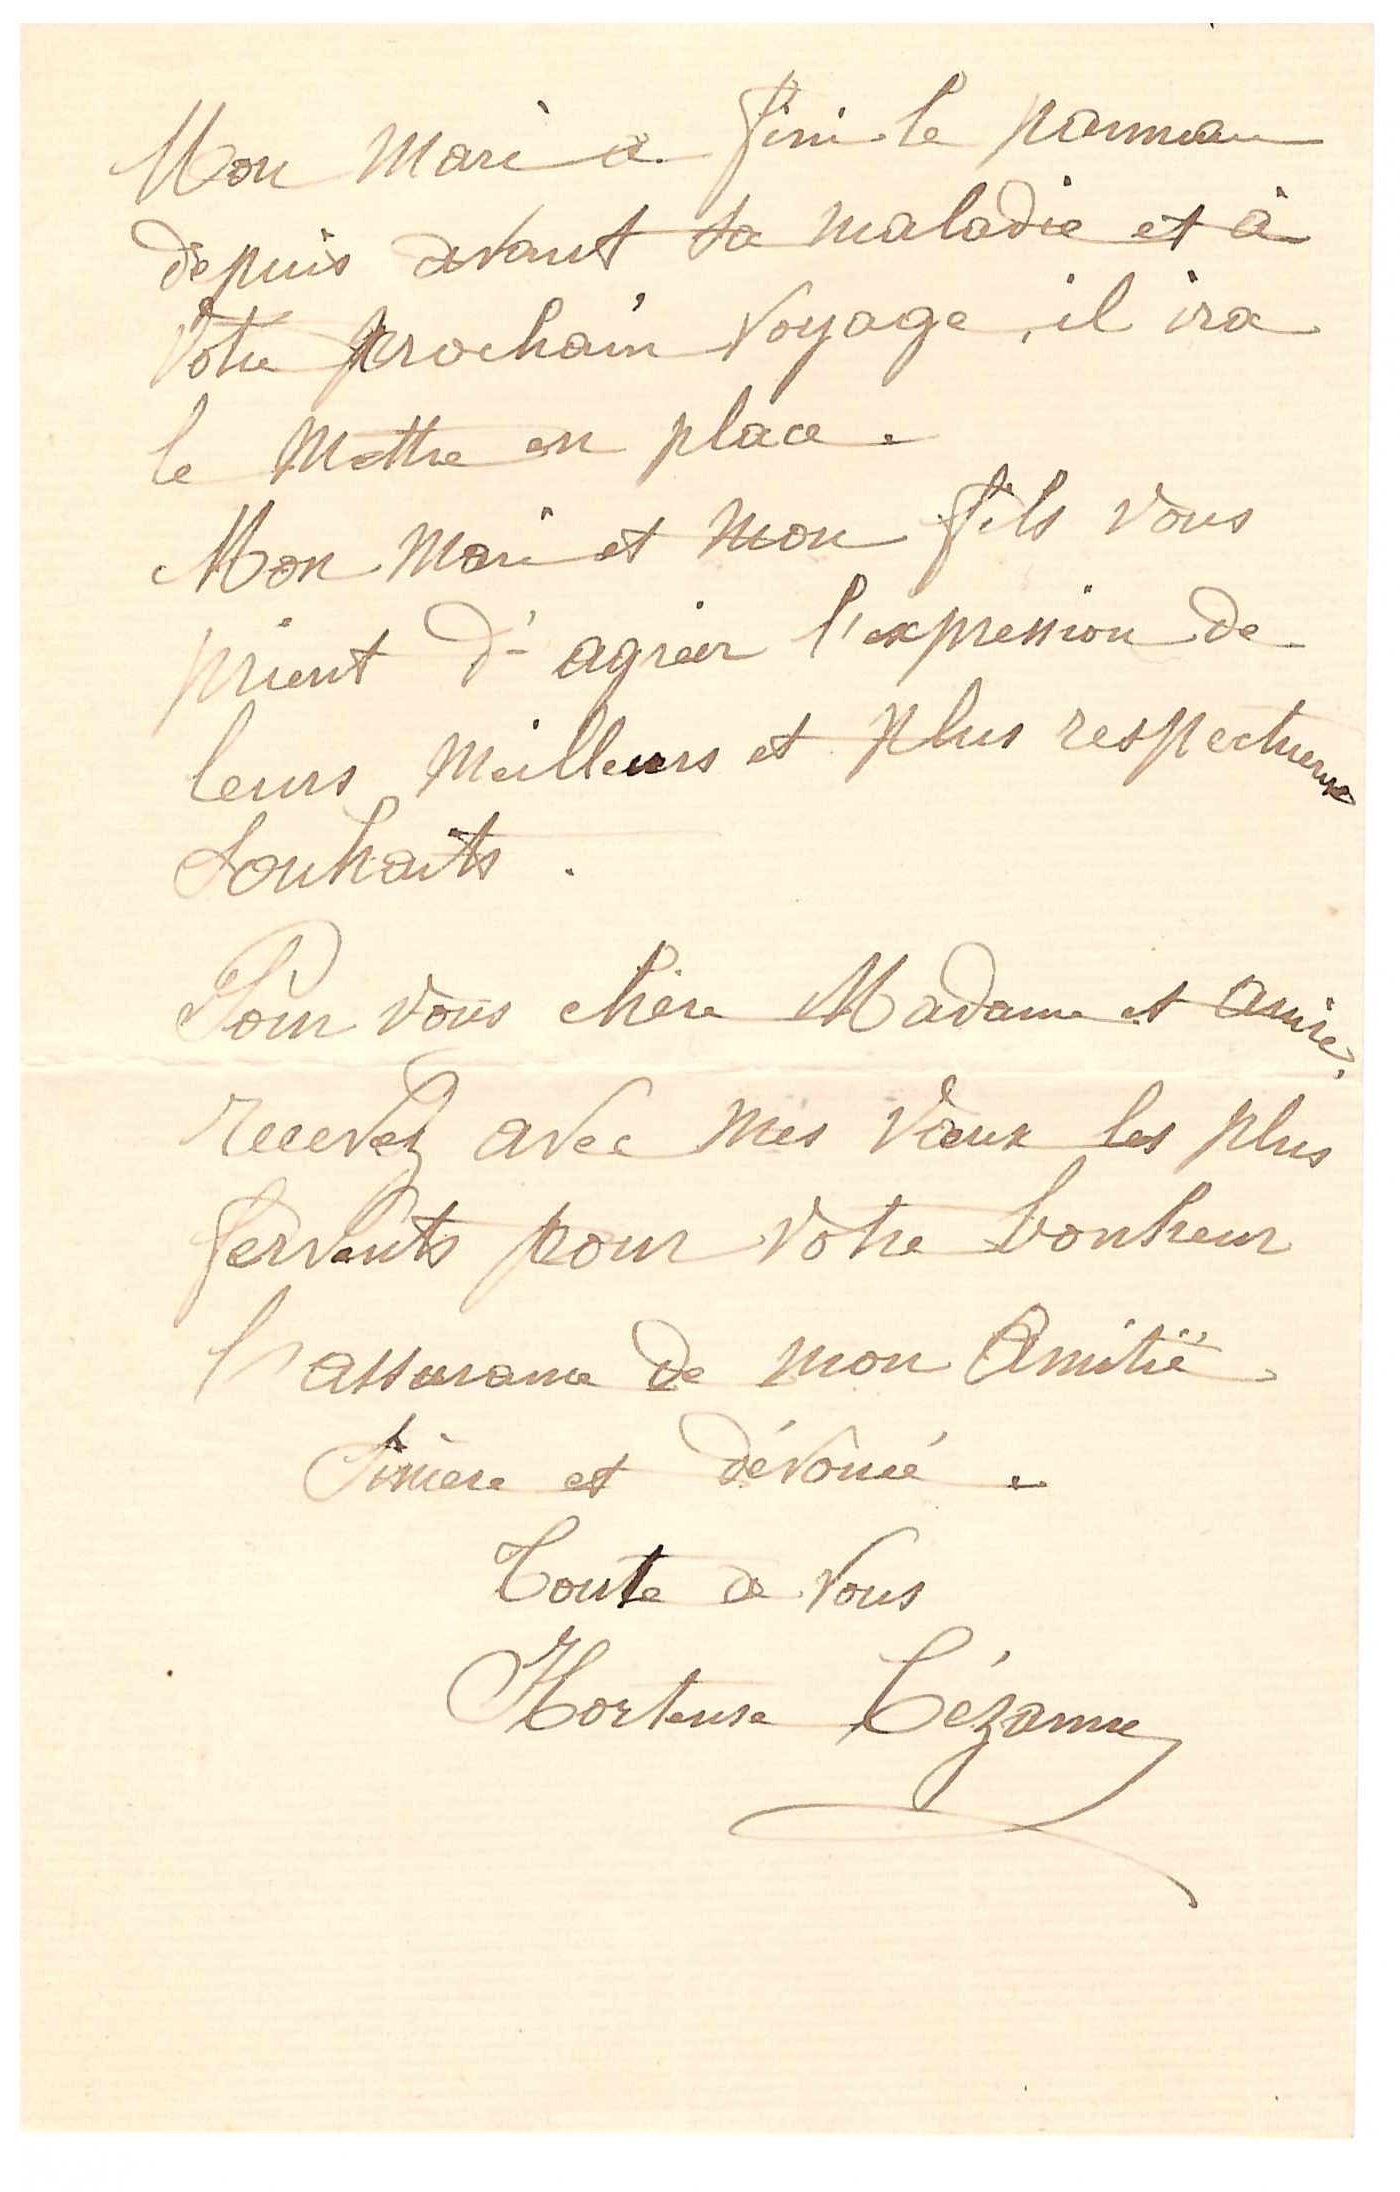 Mon Mari a fini le panneau
depuis avant sa maladie et à
votre prochain voyage, il ira
le mettre en place.
Mon Mari et mon fils vous
prient d'agréer l'expression de
leurs meilleurs et plus respectueux
souhaits.
Pour vous chère Madame et amie,
recevez avec mes vœux les plus
fervents pour votre bonheur
l'assurance de mon Amitié
sincère et dévoué.
Toute à vous
Hortense Cézanne